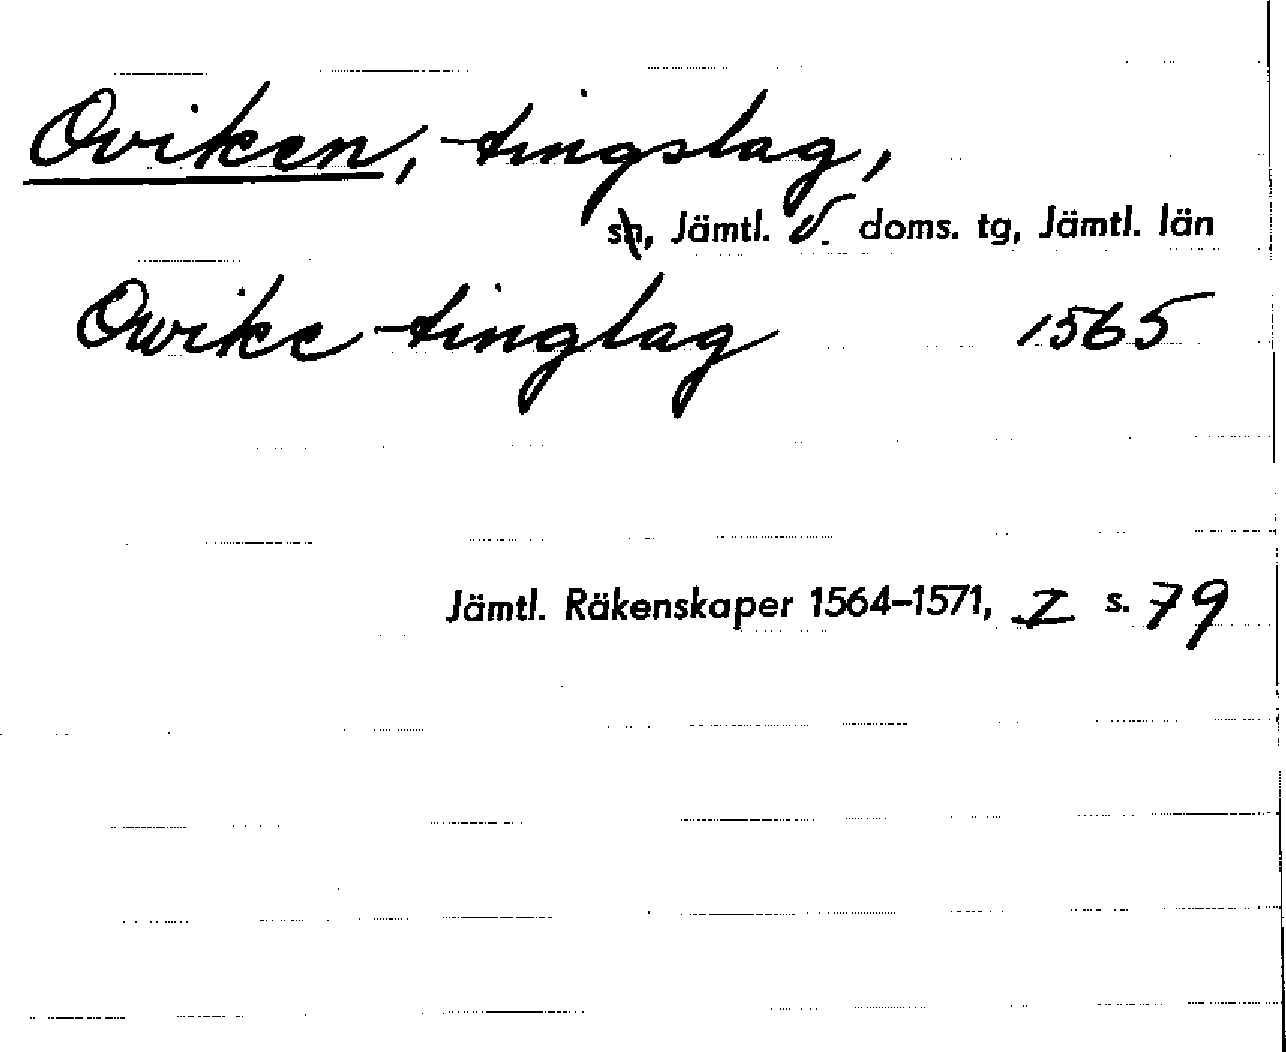 Oviken, tingslag,
sn, Jämtl. V. doms. tg, Jämtl. län
Owike tinglag 1565
Jämtl. Räkenskaper 1564–1571, I s. 79